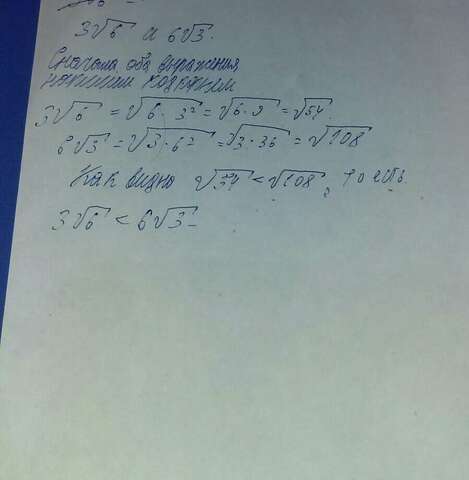 3√6 и 6√3.
Сначала оба выражения
3√6 = √6·3² = √6·9 = √54.
6√3 = √3·6² = √3·36 = √108
Как видно √54 < √108, то есть
3√6 < 6√3